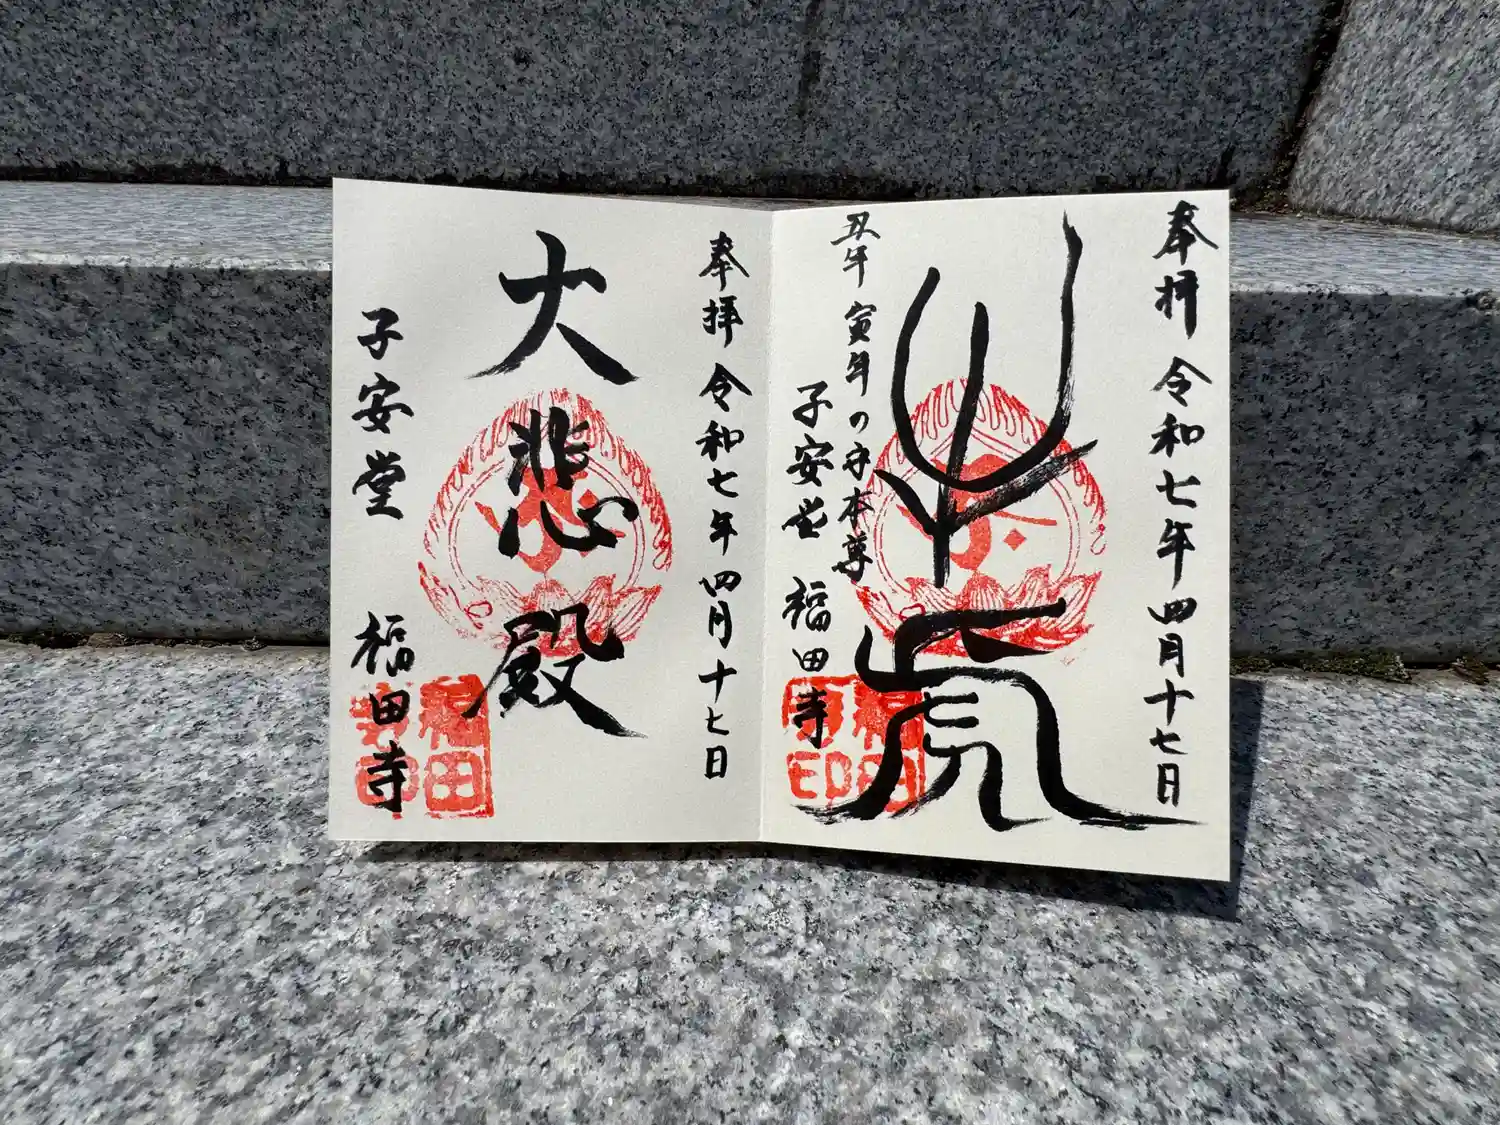 奉拝 令和七年四月十七日
牛虎
丑年 寅年の守本尊
子安堂 福田寺
福田寺印
奉拝 令和七年四月十七日
大悲殿
子安堂
福田寺
福田寺印